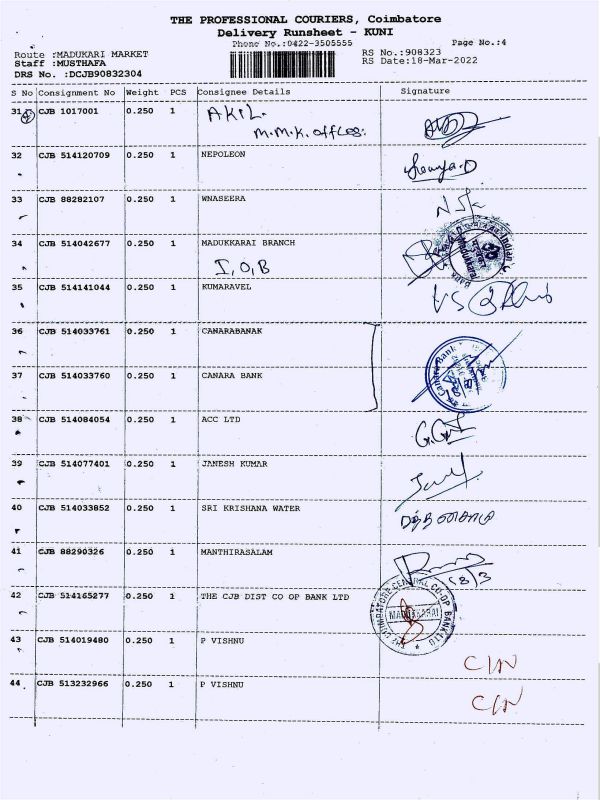 THE PROFESSIONAL COURIERS, Coimbatore
Delivery Runsheet - KUNI
Phone No.:0422-3505555 Page No.:4
Route :MADUKARI MARKET RS No.:908323
Staff :MUSTHAFA RS Date:18-Mar-2022
DRS No. :DCJB90832304
S No Consignment No Weight PCS Consignee Details Signature
31 CJB 1017001 0.250 1 AKIL.
M.M.K. offices:
32 CJB 514120709 0.250 1 NEPOLEON
33 CJB 88282107 0.250 1 WNASEERA
34 CJB 514042677 0.250 1 MADUKKARAI BRANCH
I,O,B
35 CJB 514141044 0.250 1 KUMARAVEL
36 CJB 514033761 0.250 1 CANARABANAK
37 CJB 514033760 0.250 1 CANARA BANK
Canara Bank
38 CJB 514084054 0.250 1 ACC LTD
39 CJB 514077401 0.250 1 JANESH KUMAR
40 CJB 514033852 0.250 1 SRI KRISHANA WATER
41 CJB 88290326 0.250 1 MANTHIRASALAM
18/3
42 CJB 514165277 0.250 1 THE CJB DIST CO OP BANK LTD
THE COIMBATORE CENTRAL CO-OP BANK LTD
MADUKKARAI
43 CJB 514019480 0.250 1 P VISHNU C/N
44 CJB 513232966 0.250 1 P VISHNU C/N